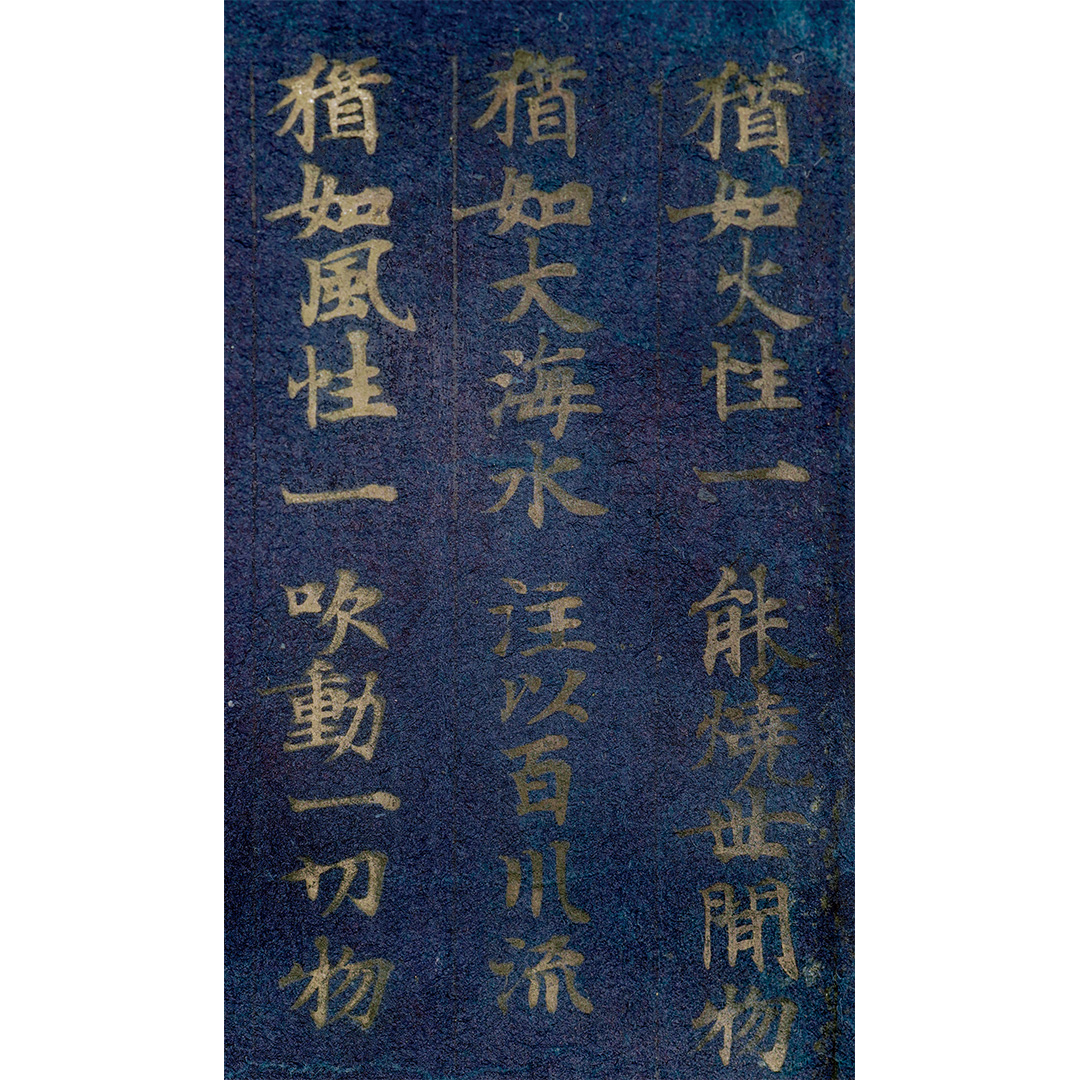 猶如火性一 能燒世間物
猶如大海水 注以百川流
猶如風性一 吹動一切物